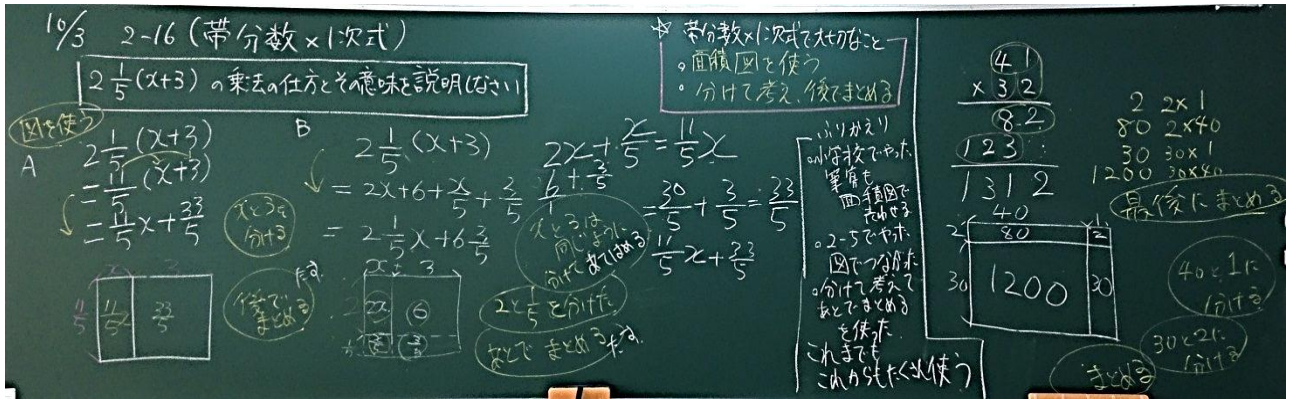 10/3 2-16(帯分数×1次式)
2 1/5 (x+3) の乗法の仕方とその意味を説明しなさい
図を使う
A
2 1/5 (x+3)
= 11/5 (x+3)
= 11/5 x + 33/5
xと3を
分ける
後で
まとめる
たす
11/5
11/5
33/5
B
2 1/5 (x+3)
= 2x+6+ x/5 + 3/5
= 2 1/5 x + 6 3/5
x 3
2x
6
2と1/5を分けた
あとでまとめる
たす
2x+ x/5 = 11/5 x
6/1 + 3/5
= 30/5 + 3/5 = 33/5
11/5 x + 33/5
xと3は
同じように
分けてあてはめる
☆ 帯分数×1次式で大切なこと
・面積図を使う
・分けて考え、後でまとめる
ふりかえり
・小学校でやった
筆算も
面積図で
表わせる
・2-5でやった
図でつながった
・分けて考えて
あとでまとめる
を使った
これまでも
これからもたくさん使う
41
×32
82
123
1312
2 2×1
80 2×40
30 30×1
1200 30×40
最後にまとめる
40 1
2 80 2
30 1200 30
40と1に
分ける
30と2に
分ける
まとめる